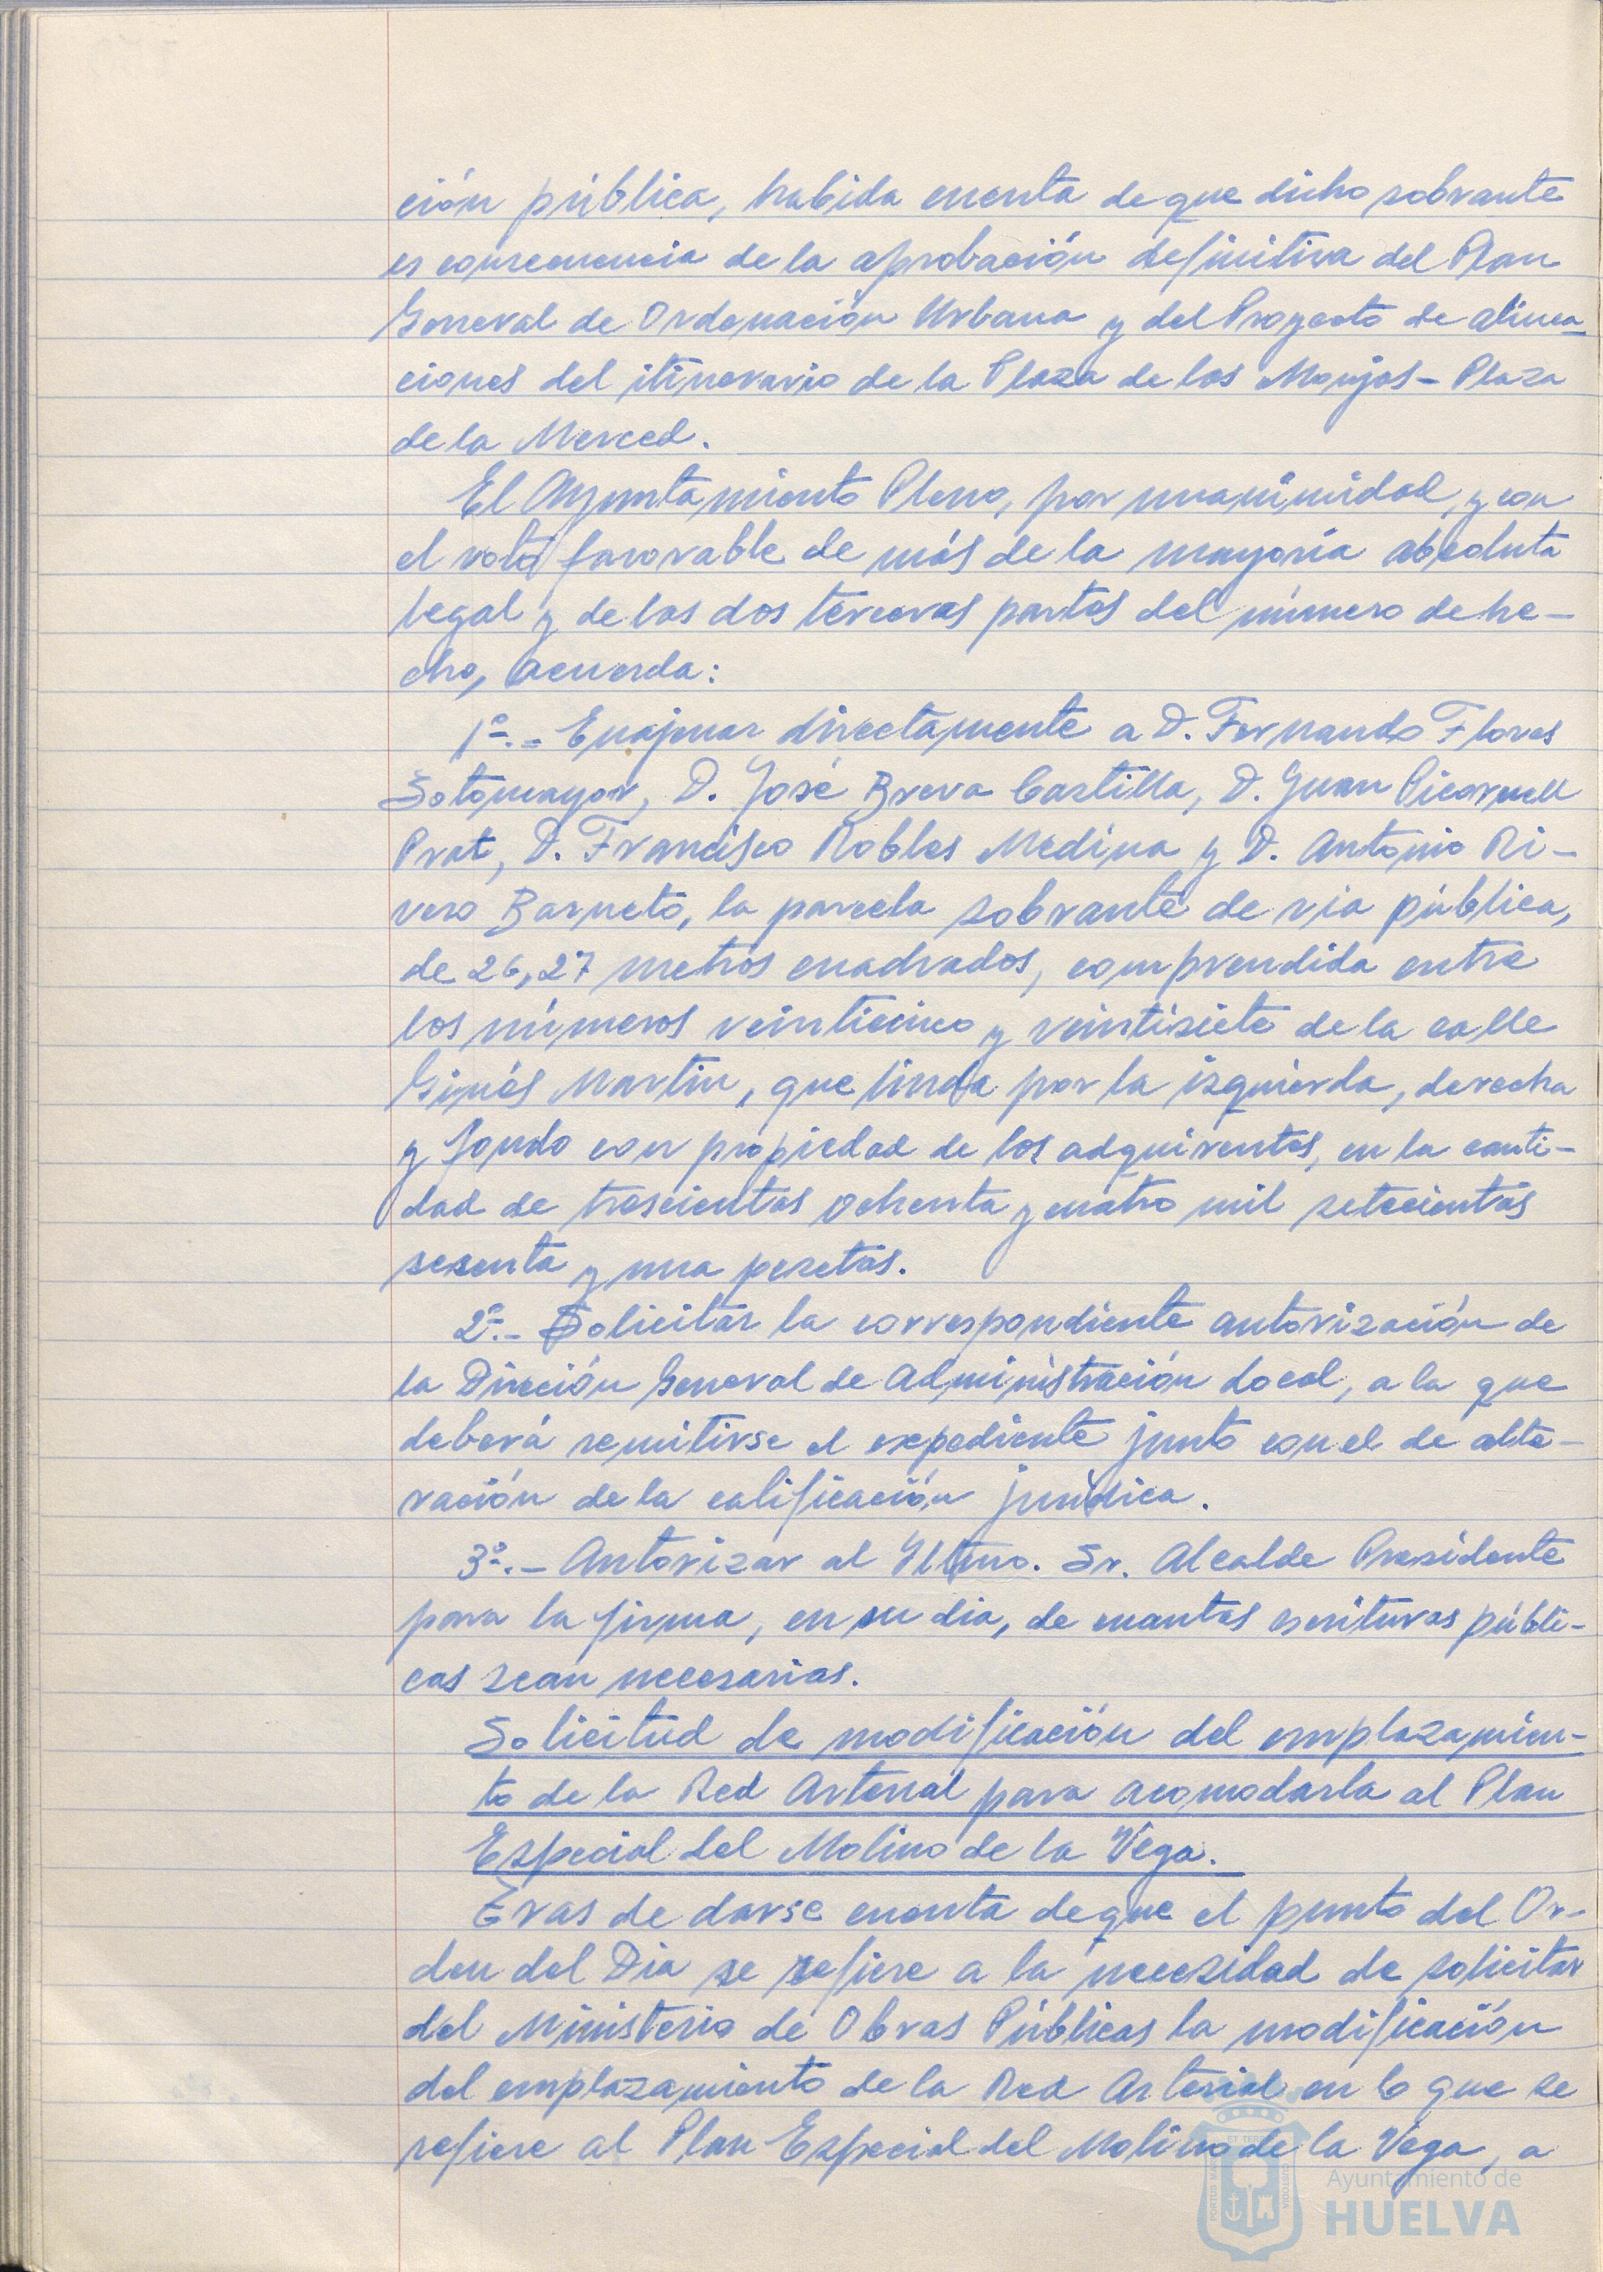 ción pública, habida cuenta de que dicho sobrante
es consecuencia de la aprobación definitiva del Plan
General de Ordenación Urbana y del Proyecto de alinea-
ciones del itinerario de la Plaza de las Monjas - Plaza
de la Merced.
El Ayuntamiento Pleno, por unanimidad, y con
el voto favorable de más de la mayoría absoluta
legal y de las dos terceras partes del número de he-
cho, acuerda:
1º.- Enajenar directamente a D. Fernando Flores
Sotomayor, D. José Breva Castilla, D. Juan Picornell
Prat, D. Francisco Robles Medina y D. Antonio Ri-
vero Barneto, la parcela sobrante de via pública,
de 26,27 metros cuadrados, comprendida entre
los números veinticinco y veintisiete de la calle
Ginés Martin, que linda por la izquierda, derecha
y fondo con propiedad de los adquirentes, en la canti-
dad de trescientas ochenta y cuatro mil setecientas
sesenta y una pesetas.
2º.- Solicitar la correspondiente autorización de
la Dirección General de Administración Local, a la que
deberá remitirse el expediente junto con el de alte-
ración de la calificación jurídica.
3º.- Autorizar al Iltmo. Sr. Alcalde Presidente
para la firma, en su dia, de cuantas escrituras públi-
cas sean necesarias.
Solicitud de modificación del emplazamien-
to de la Red Arterial para acomodarla al Plan
Especial del Molino de la Vega.
Tras de darse cuenta de que el punto del Or-
den del Dia se refiere a la necesidad de solicitar
del Ministerio de Obras Públicas la modificación
del emplazamiento de la Red Arterial en lo que se
refiere al Plan Especial del Molino de la Vega, a
Ayuntamiento de
HUELVA